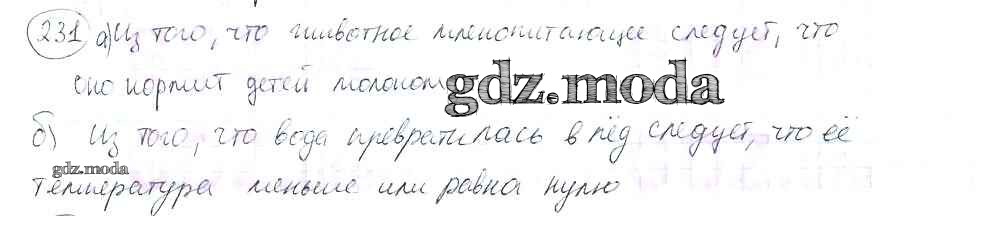 231 а) Из того, что животное млекопитающее следует, что
оно кормит детей молоком
gdz.moda
б) Из того, что вода превратилась в лёд следует, что её
gdz.moda
температура меньше или равна нулю